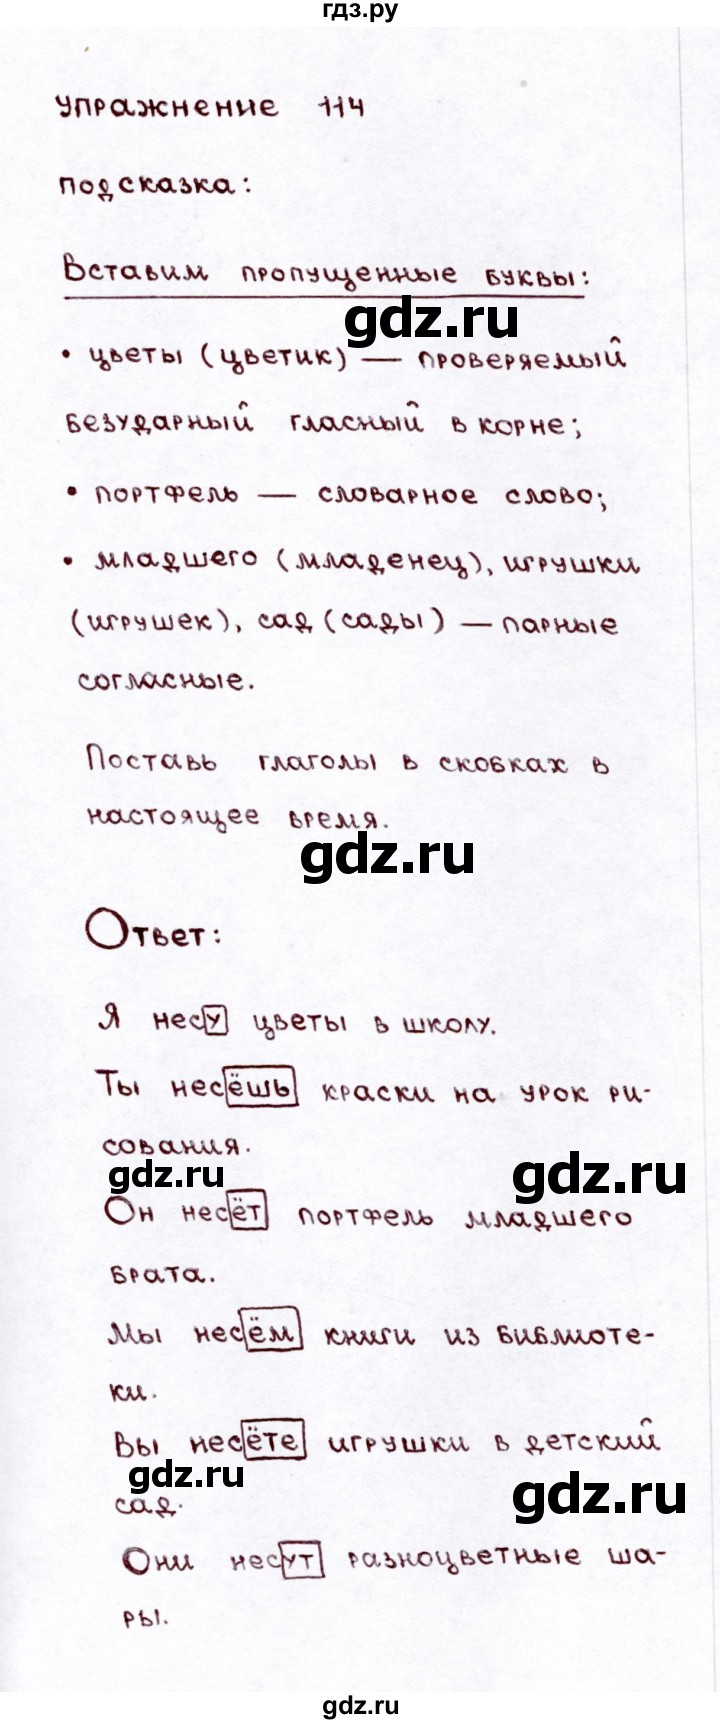 гдз.ру
Упражнение 114
Подсказка:
Вставим пропущенные буквы:
gdz.ru
• цветы (цветик) — проверяемый
безударный гласный в корне;
• портфель — словарное слово;
• младшего (младенец), игрушки
(игрушек), сад (сады) — парные
согласные.
Поставь глаголы в скобках в
настоящее время.
gdz.ru
Ответ:
Я несу цветы в школу.
Ты несёшь краски на урок ри-
сования.
gdz.ru
gdz.ru
Он несёт портфель младшего
брата.
Мы несём книги из библиоте-
ки.
Вы несёте игрушки в детский
gdz.ru
gdz.ru
сад.
Они несут разноцветные ша-
ры.
gdz.ru